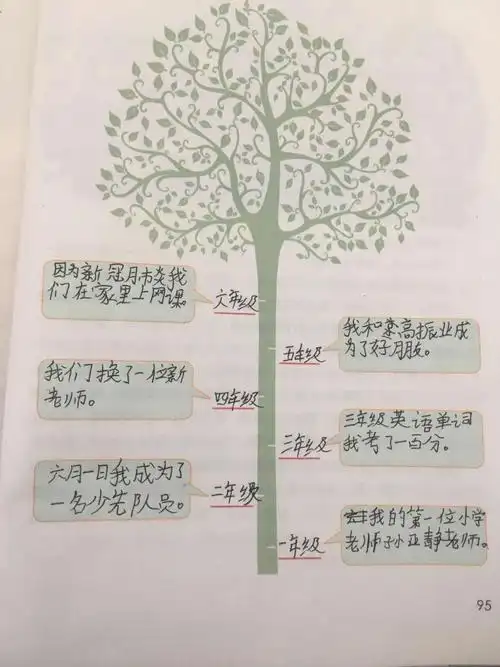 因为新冠肺炎我
们在家里上网课
六年级
我和栾高振业成
为了好朋友。
五年级
我们换了一位新
老师。
四年级
三年级英语单词
我考了一百分。
三年级
六月一日我成为了
一名少先队员。
二年级
我的第一位小学
老师孙亚静老师。
一年级
95